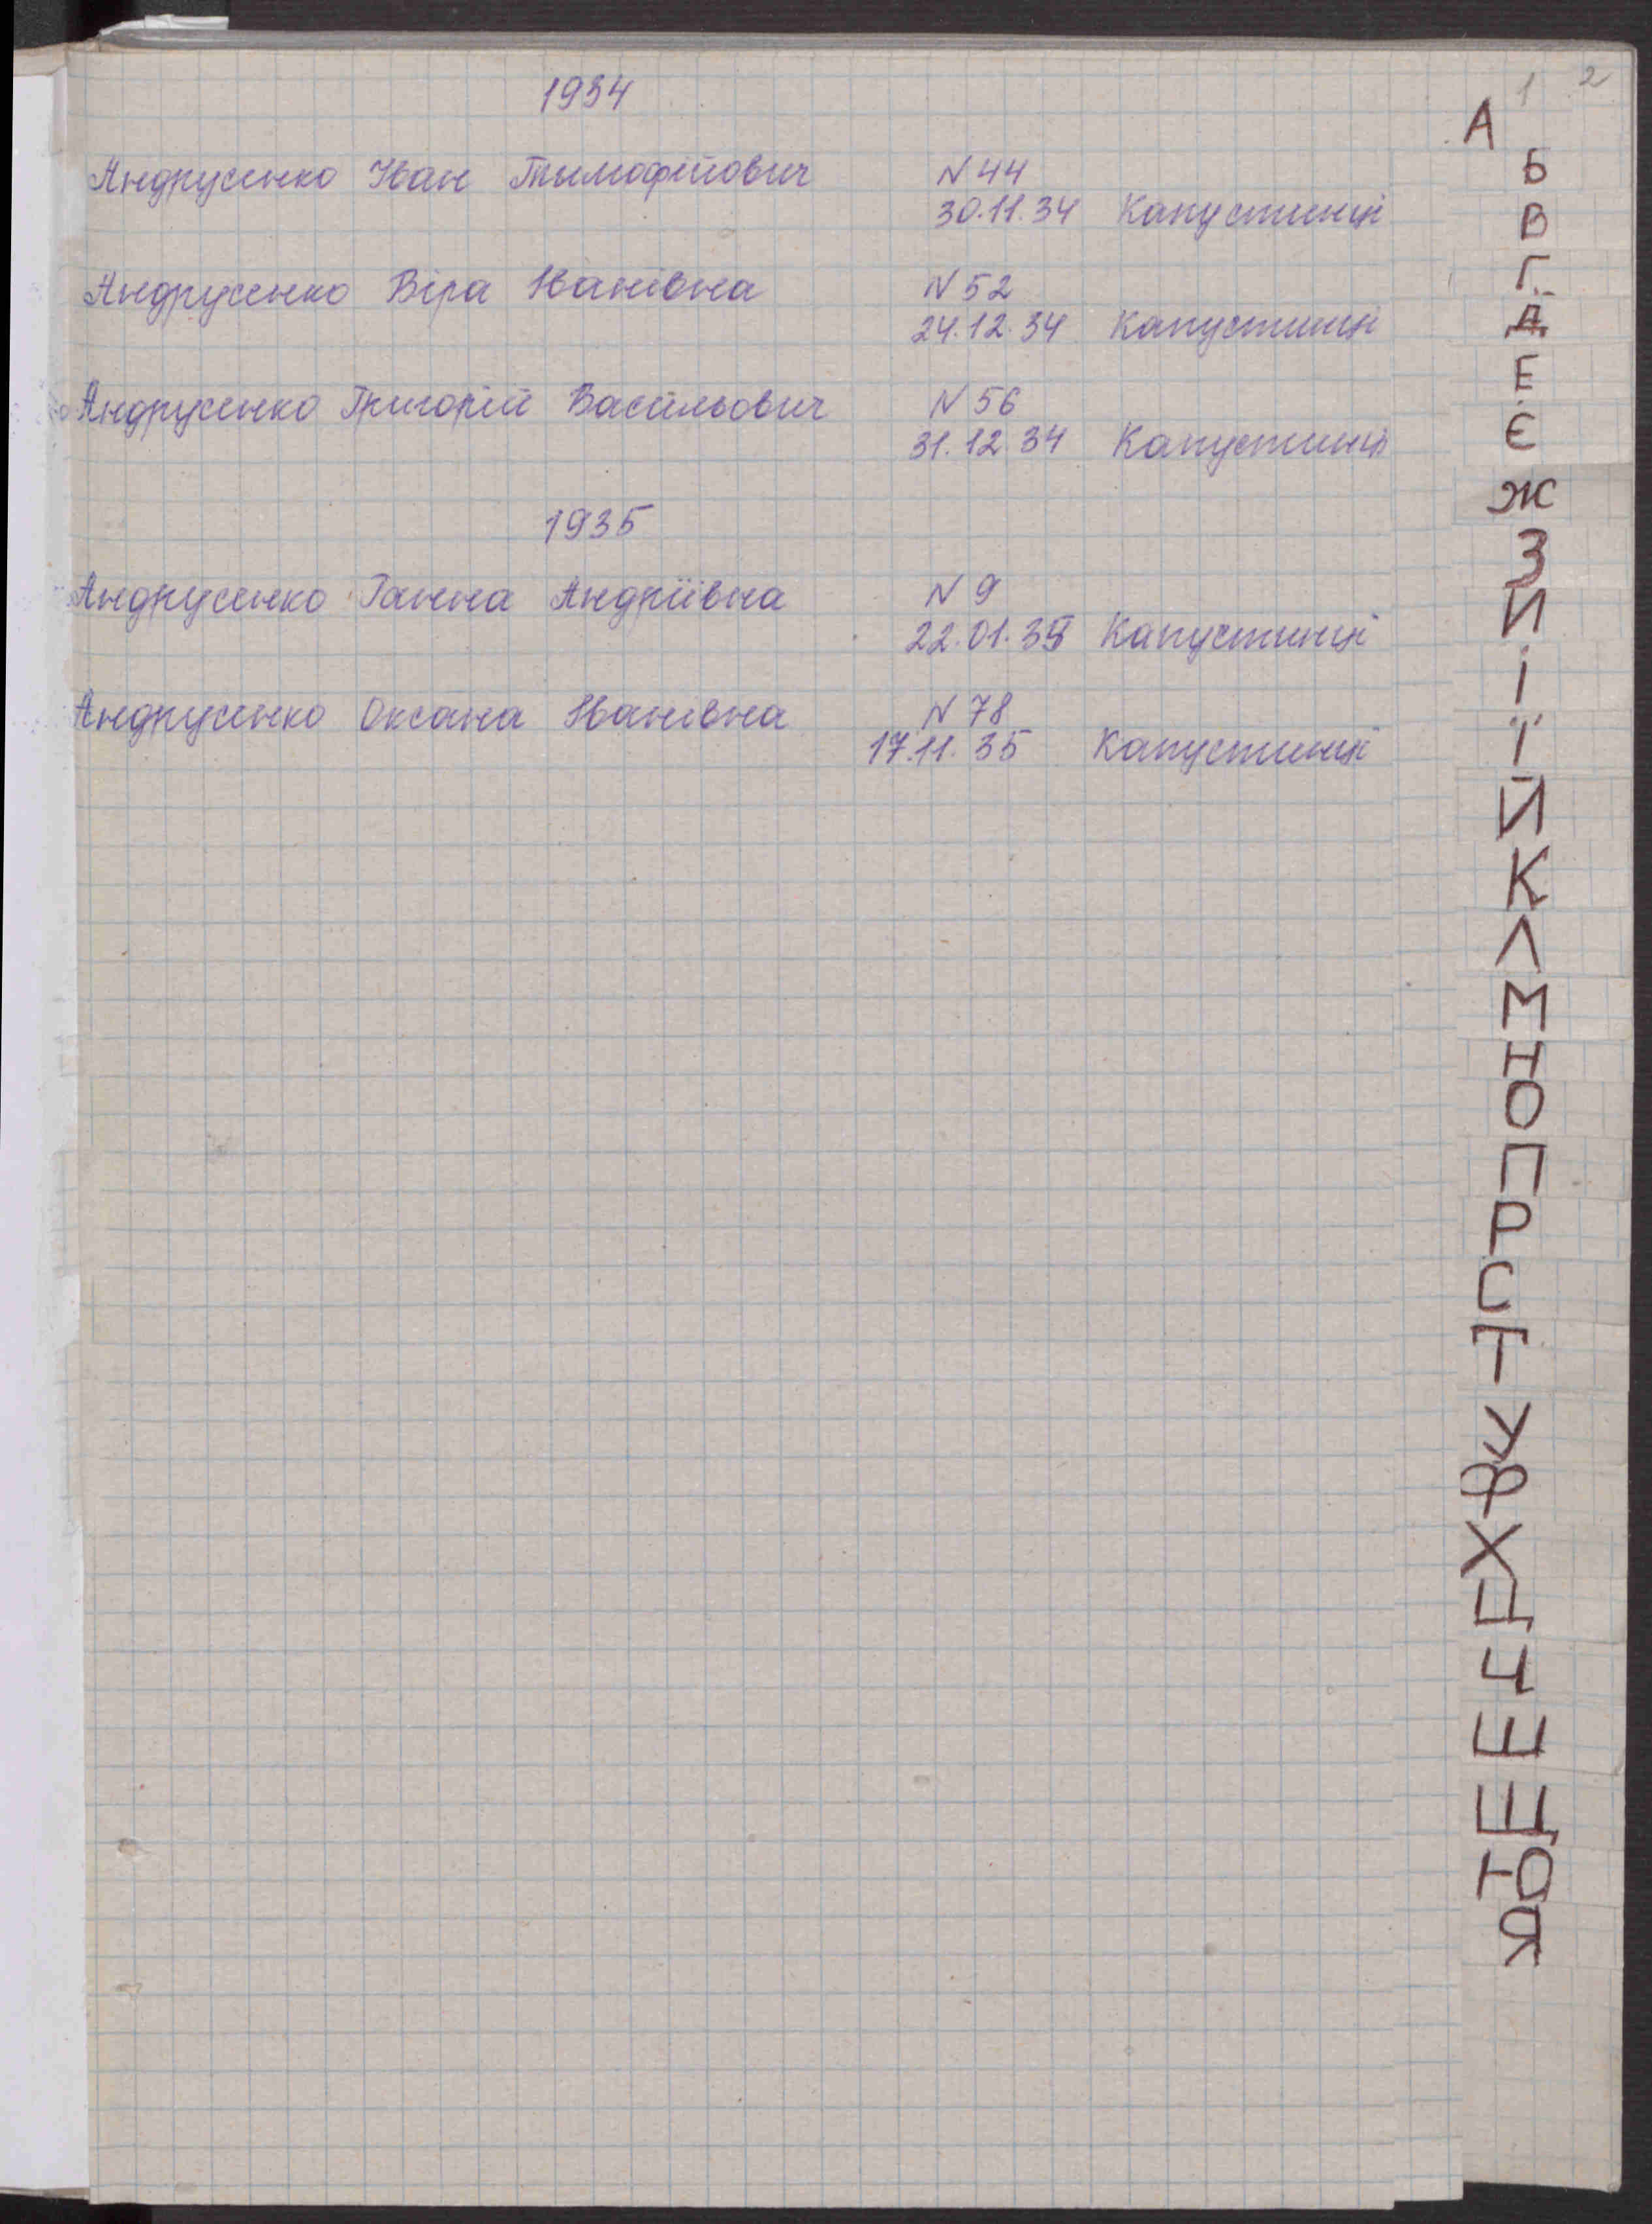 1 2
1934
Андрусенко Іван Тимофійович N 44
30.11.34 Капустинці
Андрусенко Віра Іванівна N 52
24.12.34 Капустинці
Андрусенко Григорій Васильович N 56
31.12.34 Капустинці
1935
Андрусенко Ганна Андріївна N 9
22.01.35 Капустинці
Андрусенко Оксана Іванівна N 78
17.11.35 Капустинці
А
Б
В
Г
Д
Е
Є
Ж
З
И
І
Ї
Й
К
Л
М
Н
О
П
Р
С
Т
У
Ф
Х
Ц
Ч
Ш
Щ
Ю
Я